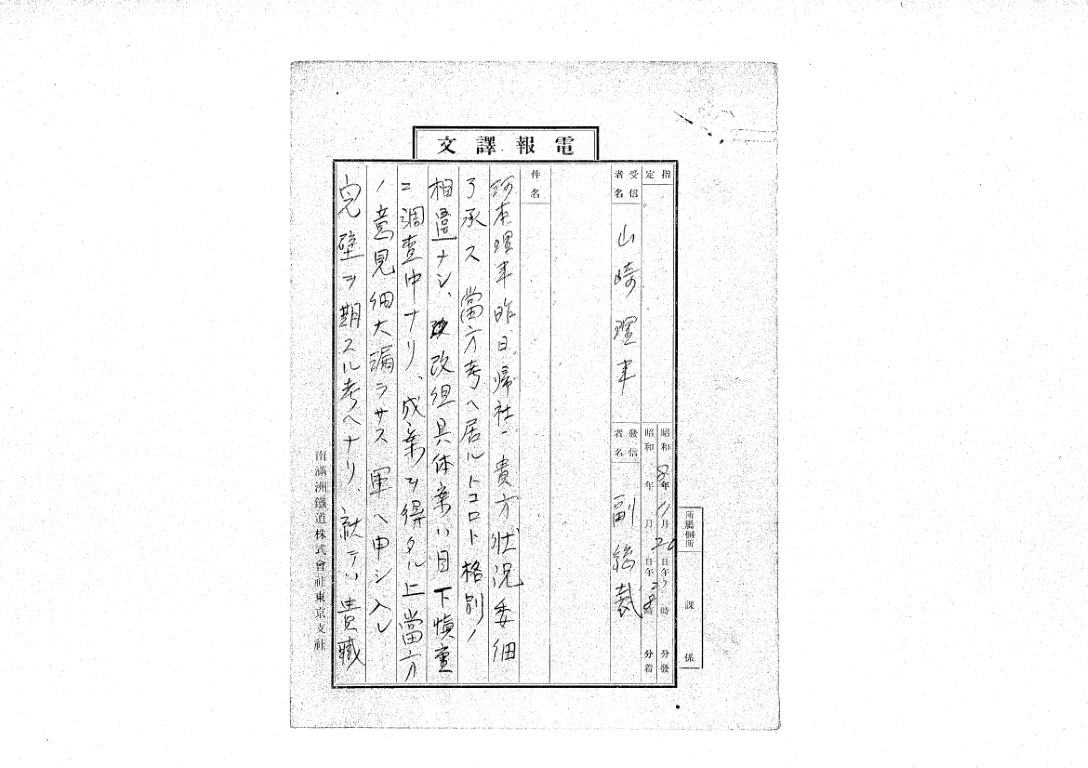 電報譯文
指定
受信者名 山崎理事
發信者名 副総裁
昭和8年11月20日午 時 分發
昭和 年 月 日午 8時 分着
所屬個所 課 係
件名
河本理事昨日帰社、貴方状況委細
了承ス 當方考ヘ居ルトコロト格別ノ
相違ナシ、改組具体案ハ目下慎重
ニ調査中ナリ、成案ヲ得タル上當方
ノ意見細大漏ラサス軍ヘ申シ入レ
完璧ヲ期スル考ヘナリ、就テハ貴職
南滿洲鐵道株式會社東京支社